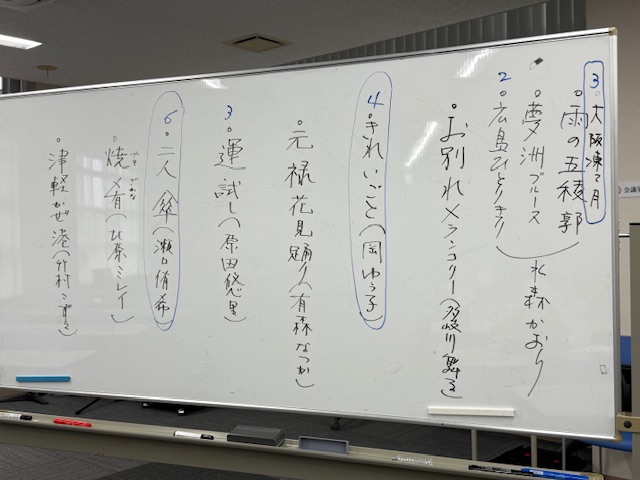 3 。大阪凍て月
。雨の五稜郭
。夢洲ブルース
2 。広島ひとりきり
水森かおり
。お別れメランコリー(多岐川舞子)
4 。きれいごと(岡ゆう子)
。元禄花見踊り(有森なつか)
3 。運試し(原田悠里)
6 。二人傘(瀬口侑希)
。焼 (北原ミレイ)
。津軽かぜ港(竹村こずえ)
会議室